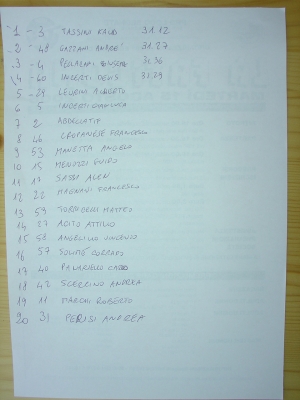 1 - 3 TASSINI 31.12
2 - 48 GAZZANI ANDRE' 31.27
3 - 4 31.36
4 - 60 INDERTI DENIS 31.39
5 - 29 ROBERTO
6 - 5 INDERTI GIANLUCA
7 2 ABDELLATIF
8 46 CROPANESE FRANCESCO
9 53 MANETTA ANGELO
10 15 MENOZZI GUIDO
11 19 SASSI ALEN
12 22 MAGNANI FRANCESCO
13 59 MATTEO
14 27 ACITO ATTILIO
15 58 ANGELILLO VINCENZO
16 57 CORRADO
17 40
18 42 SGERRINO ANDREA
19 11 MARONI ROBERTO
20 31 PERISI ANDREA